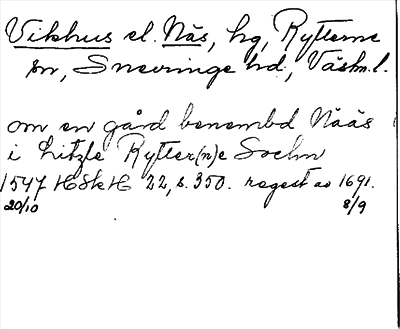 Vikhus el. Näs, hg, Rytterne
sn, Snevringe hd, Västm.l.
om en gård benembd Nääs
i Litzle Rytter(n)e Sochn
1547 HSH 22, s. 350. regest av 1691.
20/10 8/9